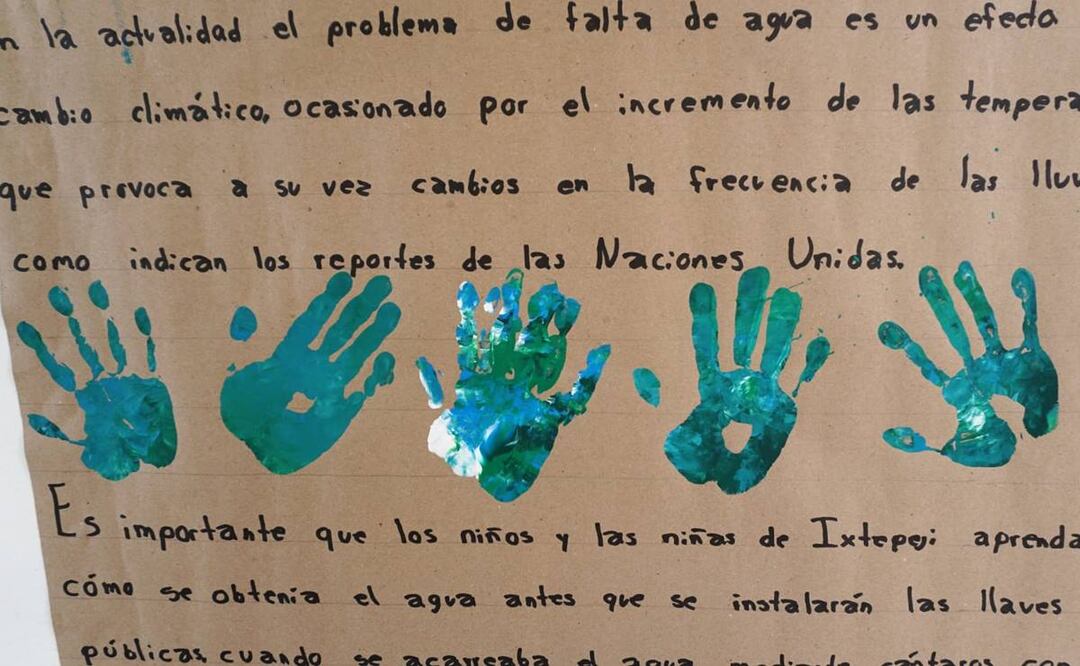 n la actualidad el problema de falta de agua es un efecto
cambio climático, ocasionado por el incremento de las tempera
que provoca a su vez cambios en la frecuencia de las lluv
como indican los reportes de las Naciones Unidas.
Es importante que los niños y las niñas de Ixtepeji aprenda
cómo se obtenía el agua antes que se instalarán las llaves
públicas, cuando se acarreaba el agua mediante cántaros con